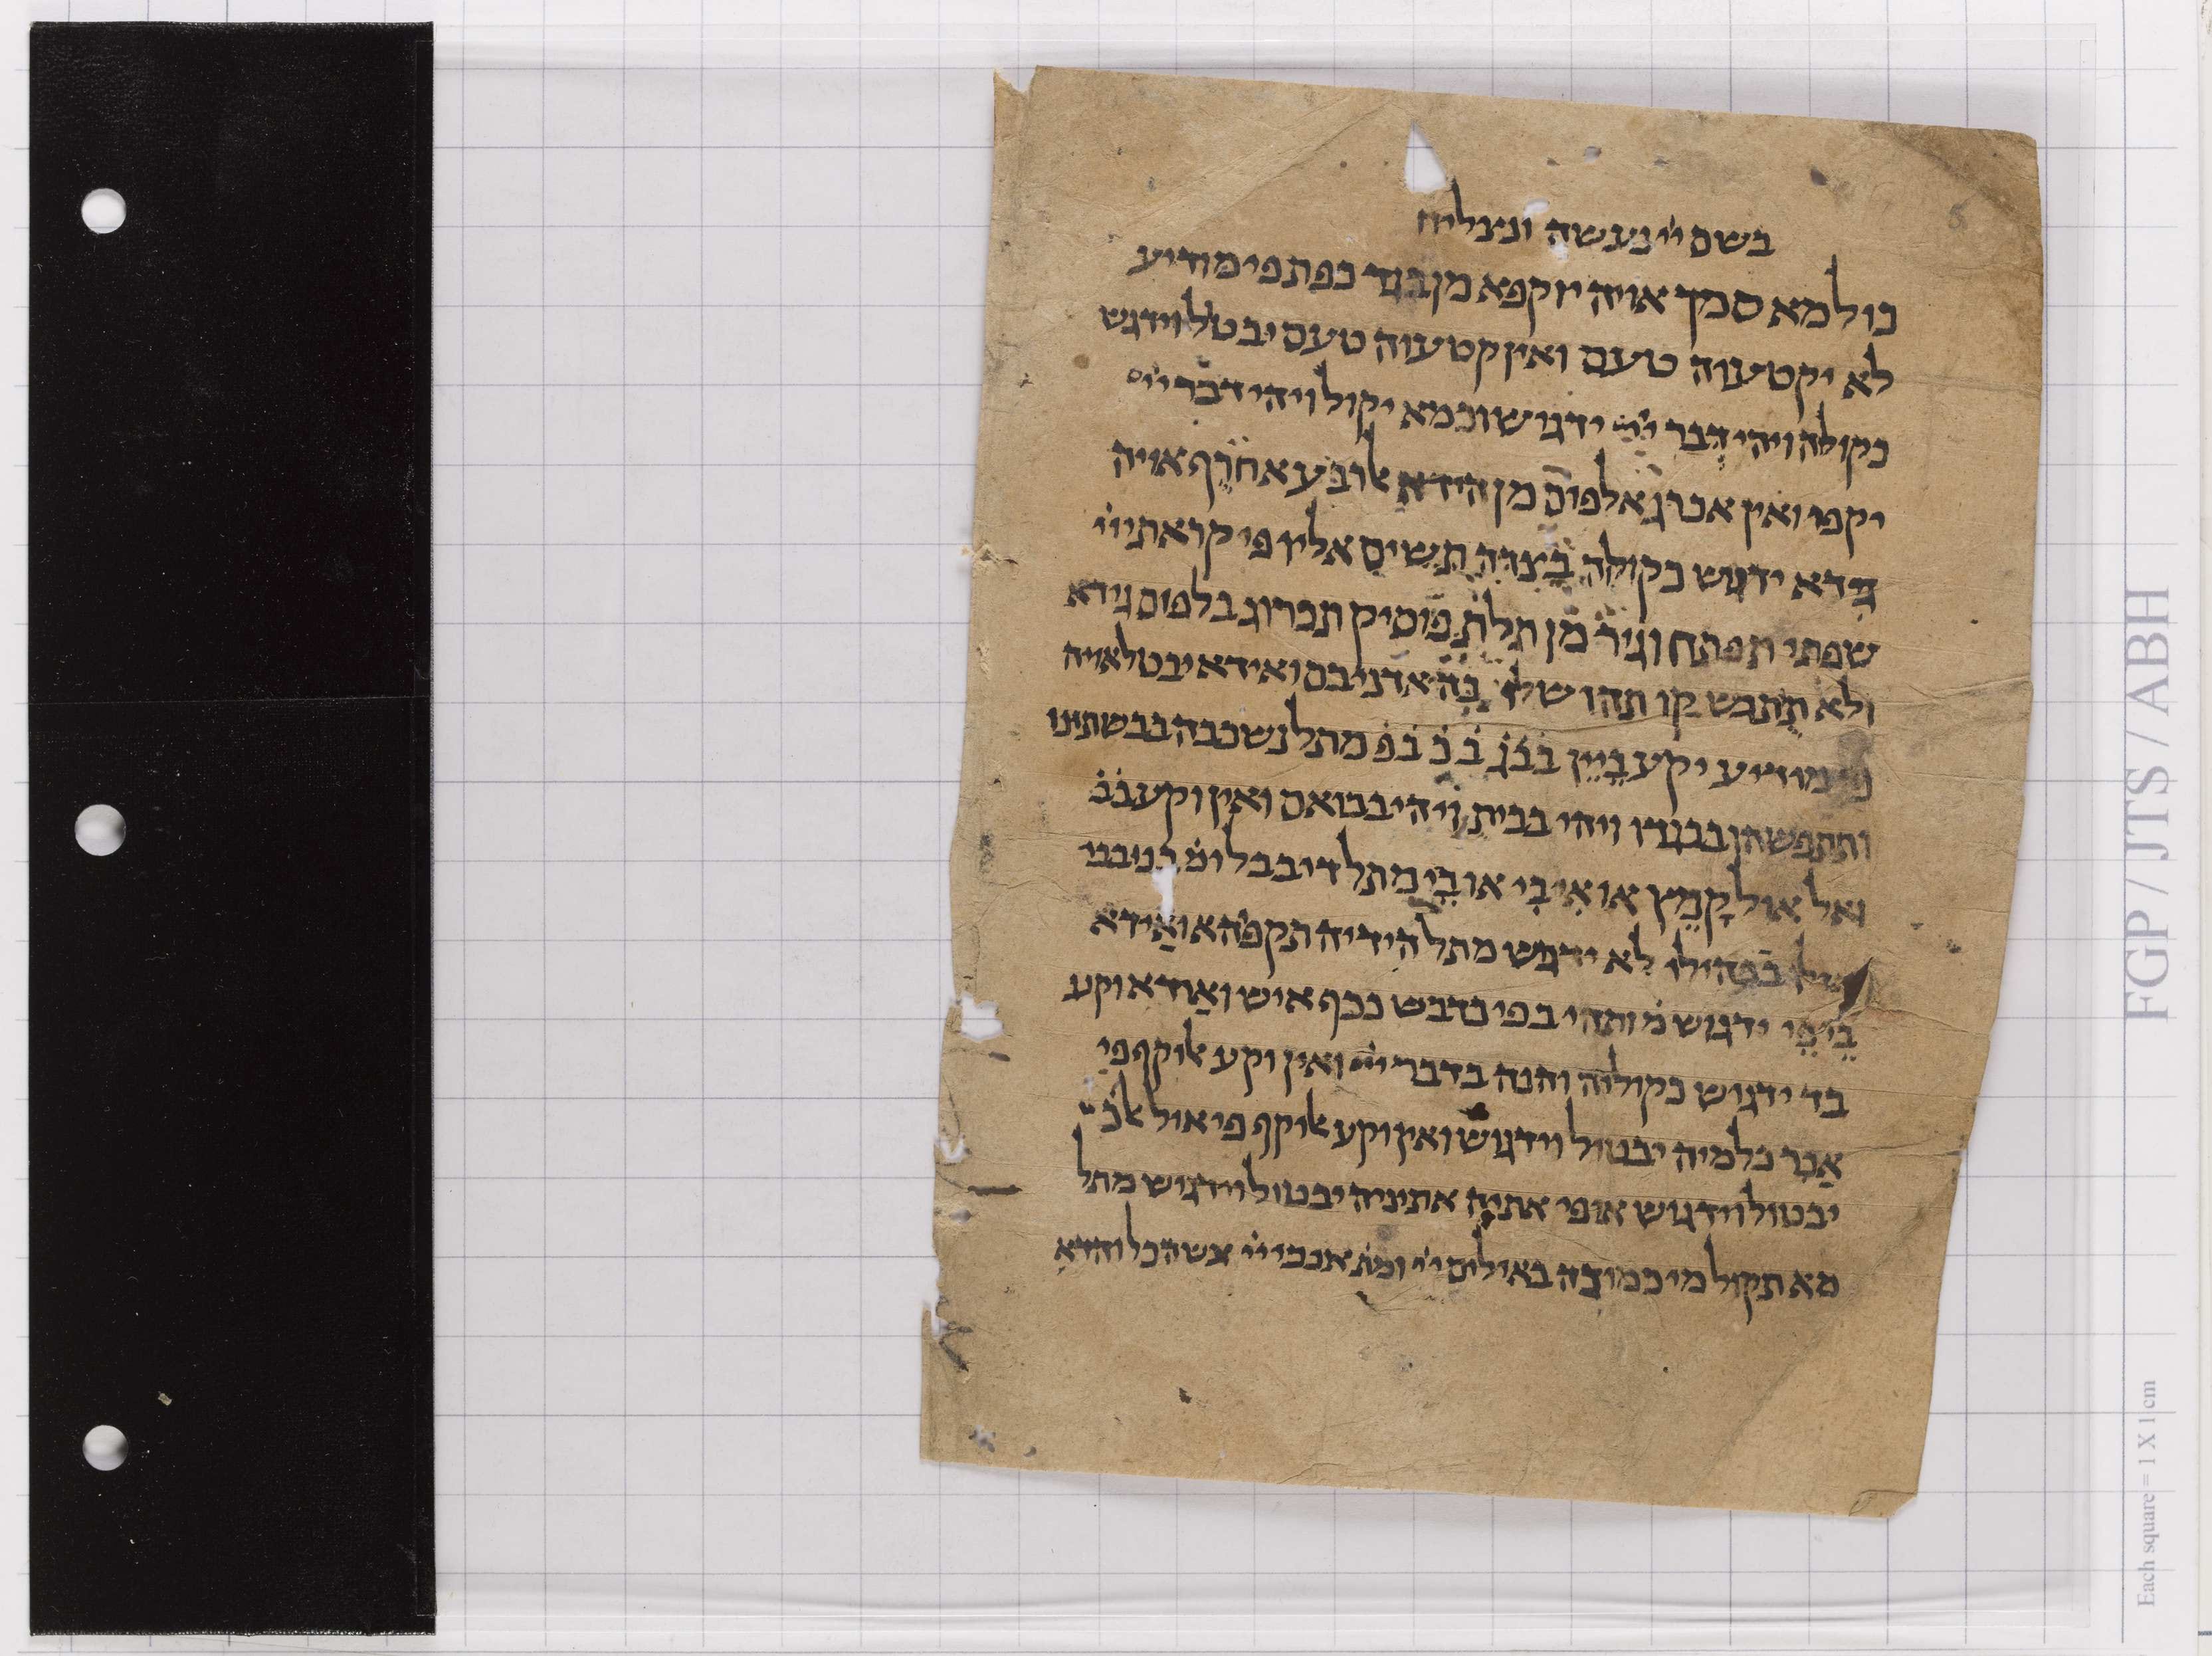 בשם ייי נעשה ונצליח
כולמא סמך אויה יוקפא מן בגד כפת פי מודיע
לא יקטעוה טעם ואין קטעוה טעם יבטל וידגש
כקולה ויהי דבר ייי ידגוש וכמא יקול ויהי דבר ייי
יקפו ואין אכרג אלפום מן הידא ארבע אחרף אויה
הדא ידגוש כקולה תשים אלין פי קראתי ייי
שפתי תפתח וגיר מן תלת פוסיק תכרוג בלפום גידא
ולא תתגש קו תהו שלו בה אדני בם ואידא יבטל אויה
מודיע יקע בין בבג בכ בפ מתל נשכבה בבשתינו
ותתפשהו בבגדו ויהי בבית ויהי בבואם ואין וקע בב
אול קמץ או אי בי או בי מתל די בבל
לא ידגש מתל הידיה תקפהא ואידא
ידגוש ותהי בפי כדבש ככף איש ואידא וקע
בד ידגוש כקוליה והנה בדבר ייי ואין וקע אוקף פי
אכר כלמיה יבטול וידגוש ואין וקע אוקף פי אול
יבטול וידגוש אופי אתיה אתיניה יבטול וידגיש מתל
מא תקול מי כמוכה באילים ייי אנכי ייי עשה כל והדא
FGP / JTS / ABH
Each square = 1 X 1 cm